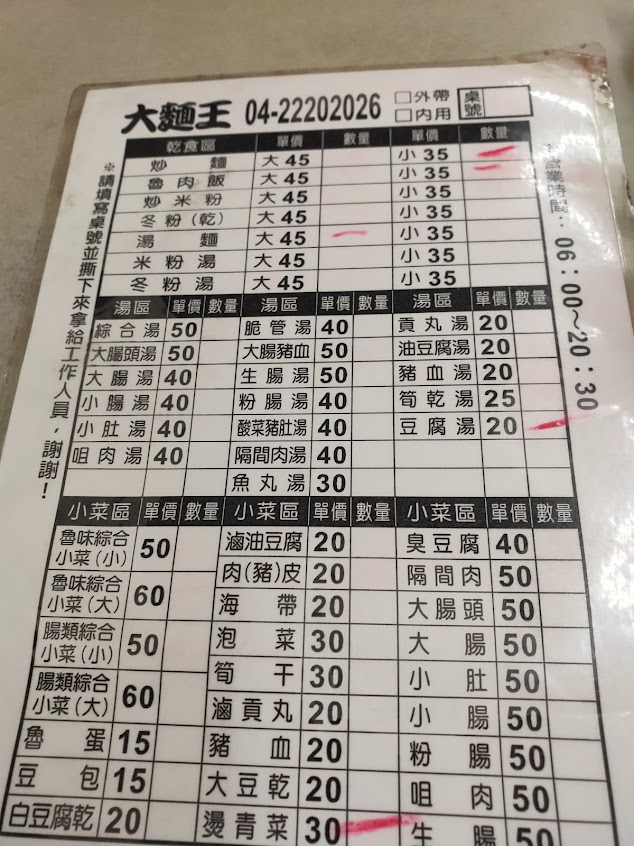 大麵王 04-22202026 □外帶 □內用 桌號
乾食區 單價 數量 單價 數量
炒麵 大45 小35
魯肉飯 大45 小35
炒米粉 大45 小35
冬粉(乾) 大45 小35
湯麵 大45 小35
米粉湯 大45 小35
冬粉湯 大45 小35
湯區 單價 數量 湯區 單價 數量 湯區 單價 數量
綜合湯 50 脆管湯 40 貢丸湯 20
大腸頭湯 50 大腸豬血 50 油豆腐湯 20
大腸湯 40 生腸湯 50 豬血湯 20
小腸湯 40 粉腸湯 40 筍乾湯 25
小肚湯 40 酸菜豬肚湯 40 豆腐湯 20
咀肉湯 40 隔間肉湯 40
魚丸湯 30
小菜區 單價 數量 小菜區 單價 數量 小菜區 單價 數量
魯味綜合小菜(小) 50 滷油豆腐 20 臭豆腐 40
肉(豬)皮 20 隔間肉 50
魯味綜合小菜(大) 60 海帶 20 大腸頭 50
腸類綜合小菜(小) 50 泡菜 30 大腸 50
筍干 30 小肚 50
腸類綜合小菜(大) 60 滷貢丸 20 小腸 50
魯蛋 15 豬血 20 粉腸 50
豆包 15 大豆乾 20 咀肉 50
白豆腐乾 20 燙青菜 30 生腸 50
※請填寫桌號並撕下來拿給工作人員，謝謝！
※營業時間：06：00～20：30